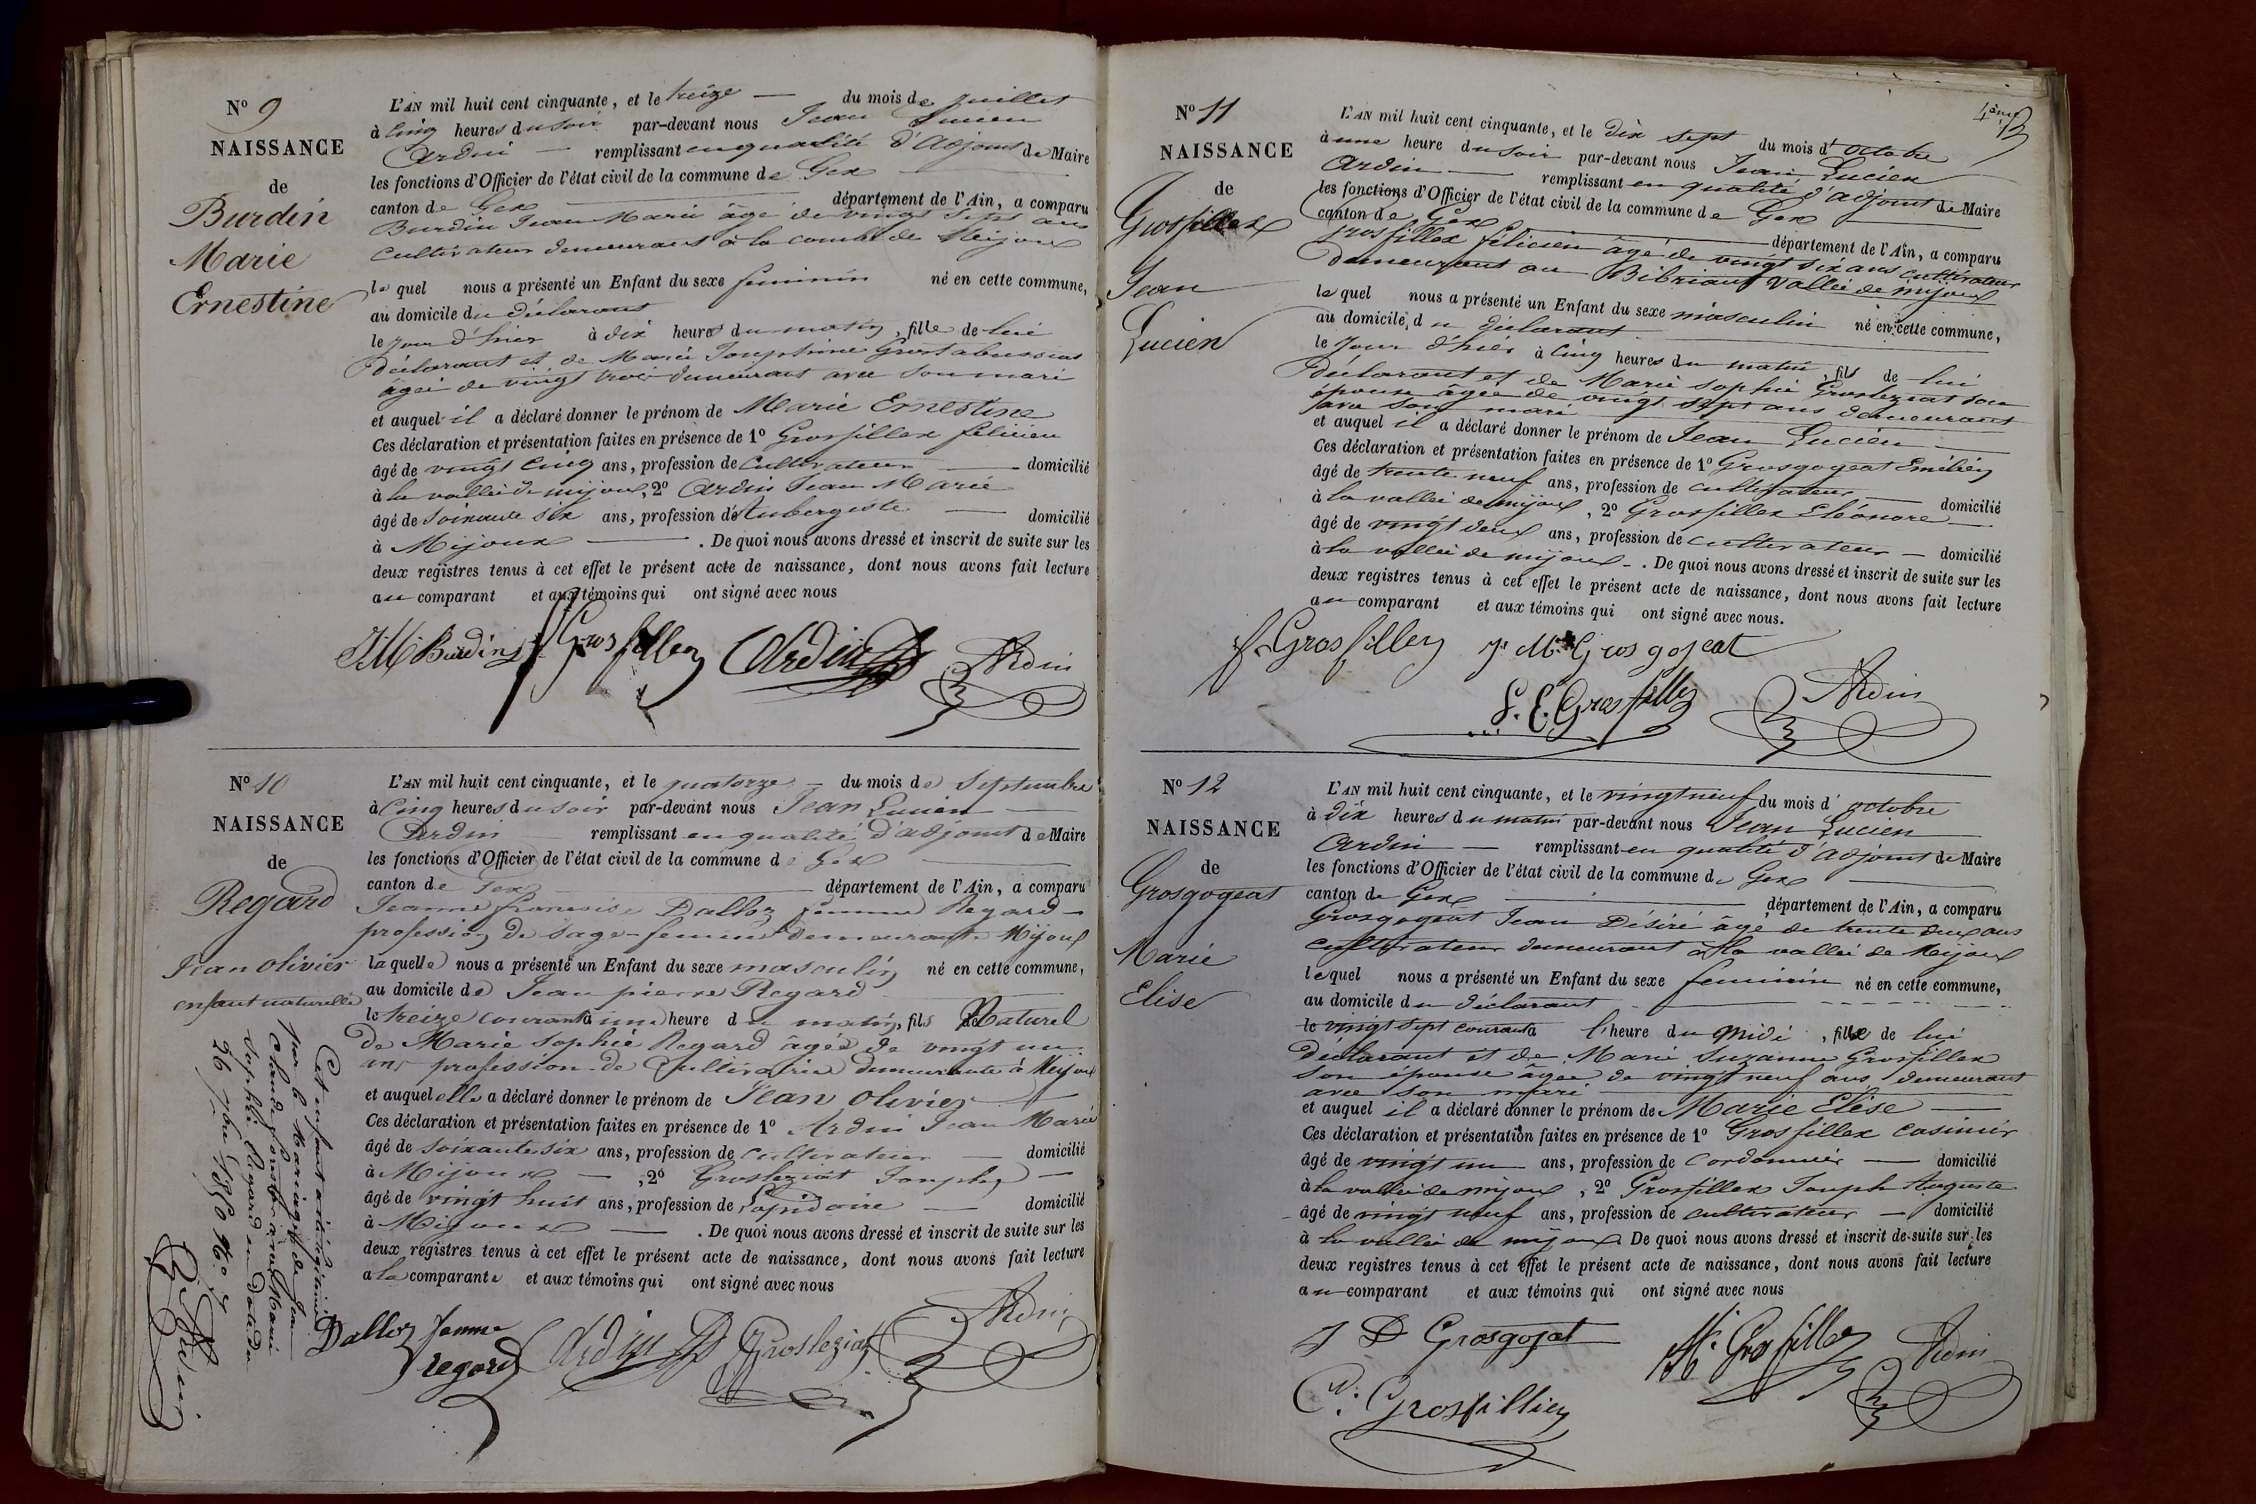 No 9
NAISSANCE
de
Burdin
Marie
Ernestine
L'AN mil huit cent cinquante, et le treize du mois de Juillet
à Cinq heures du soir par-devant nous Jean Lucien
Ardin remplissant en qualité d'Adjoint de Maire
les fonctions d'Officier de l'état civil de la commune de Gex
canton de Gex département de l'Ain, a comparu
Burdin Jean Marie âgé de vingt sept ans
cultivateur demeurant à la combe de Mijoux
lequel nous a présenté un Enfant du sexe féminin né en cette commune,
au domicile du déclarant
le jour d'hier à dix heures du matin, fille de lui
déclarant et de Marie Josephine
âgée de vingt trois demeurant avec son mari
et auquel il a déclaré donner le prénom de Marie Ernestine
Ces déclaration et présentation faites en présence de 1o Grosfillex félicien
âgé de vingt Cinq ans, profession de Cultivateur domicilié
à la vallée de mijoux, 2o Ardin Jean Marie
âgé de Soixante six ans, profession d'Aubergiste domicilié
à Mijoux. De quoi nous avons dressé et inscrit de suite sur les
deux registres tenus à cet effet le présent acte de naissance, dont nous avons fait lecture
au comparant et aux témoins qui ont signé avec nous
JM Burdin f Grosfillex Ardin Ardin
No 10
NAISSANCE
de
Regard
Jean Olivier
enfant naturelle
Cet enfant a été légitimé
par le Mariage de
Claude avec Marie
Sophie Regard en date du
26 7bre 1850 No
Ardin
L'AN mil huit cent cinquante, et le quatorze du mois de Septembre
à Cinq heures du soir par-devant nous Jean Lucien
Ardin remplissant en qualité d'adjoint de Maire
les fonctions d'Officier de l'état civil de la commune de Gex
canton de Gex département de l'Ain, a comparu
Jeanne françoise Dalloz femme Regard
profession de Sage-femme demeurante Mijoux
laquelle nous a présenté un Enfant du sexe masculin né en cette commune,
au domicile de Jean pierre Regard
le treize courant à une heure du matin, fils Naturel
de Marie Sophie Regard âgée de vingt un
ans profession de Cultivatrice demeurante à Mijoux
et auquel elle a déclaré donner le prénom de Jean Olivier
Ces déclaration et présentation faites en présence de 1o Ardin Jean Marie
âgé de soixante six ans, profession de cultivateur domicilié
à Mijoux, 2o Grosleziat Joseph
âgé de vingt huit ans, profession de Lapidaire domicilié
à Mijoux. De quoi nous avons dressé et inscrit de suite sur les
deux registres tenus à cet effet le présent acte de naissance, dont nous avons fait lecture
a la comparante et aux témoins qui ont signé avec nous
Dalloz femme
regard Ardin Grosleziat Ardin
4ème
No 11
NAISSANCE
de
Grosfillex
Jean
Lucien
L'AN mil huit cent cinquante, et le dix sept du mois d'octobre
à une heure du soir par-devant nous Jean Lucien
Ardin remplissant en qualité d'adjoint de Maire
les fonctions d'Officier de l'état civil de la commune de Gex
canton de Gex département de l'Ain, a comparu
Grosfillex félicien âgé de vingt six ans cultivateur
demeurant au vallée de mijoux
lequel nous a présenté un Enfant du sexe masculin né en cette commune,
au domicile du déclarant
le jour d'hier à Cinq heures du matin, fils de lui
déclarant et de Marie Sophie Grosleziat son
épouse âgée de vingt sept ans demeurant
avec son mari
et auquel il a déclaré donner le prénom de Jean Lucien
Ces déclaration et présentation faites en présence de 1o Grosgogeat Emilien
âgé de trente neuf ans, profession de cultivateur domicilié
à la vallée de mijoux, 2o Grosfillex Eléonore
âgé de vingt deux ans, profession de cultivateur domicilié
à la vallée de mijoux. De quoi nous avons dressé et inscrit de suite sur les
deux registres tenus à cet effet le présent acte de naissance, dont nous avons fait lecture
au comparant et aux témoins qui ont signé avec nous.
f. Grosfillex J. M. Grosgogeat
Grosfillex Ardin
No 12
NAISSANCE
de
Grosgogeat
Marie
Elise
L'AN mil huit cent cinquante, et le vingt neuf du mois d'octobre
à dix heures du matin par-devant nous Jean Lucien
Ardin remplissant en qualité d'adjoint de Maire
les fonctions d'Officier de l'état civil de la commune de Gex
canton de Gex département de l'Ain, a comparu
Grosgogeat Jean Désiré âgé de trente deux ans
cultivateur demeurant à la vallée de Mijoux
lequel nous a présenté un Enfant du sexe féminin né en cette commune,
au domicile du déclarant
le vingt sept courant à l'heure du midi, fille de lui
déclarant et de Marie Suzanne Grosfillex
son épouse âgée de vingt neuf ans demeurant
avec son mari
et auquel il a déclaré donner le prénom de Marie Elise
Ces déclaration et présentation faites en présence de 1o Grosfillex Casimir
âgé de vingt un ans, profession de Cordonnier domicilié
à la vallée de mijoux, 2o Grosfillex Joseph Auguste
âgé de vingt neuf ans, profession de cultivateur domicilié
à la vallée de mijoux. De quoi nous avons dressé et inscrit de suite sur les
deux registres tenus à cet effet le présent acte de naissance, dont nous avons fait lecture
au comparant et aux témoins qui ont signé avec nous
J D Grosgojat Grosfillex Ardin
C. Grosfilliex